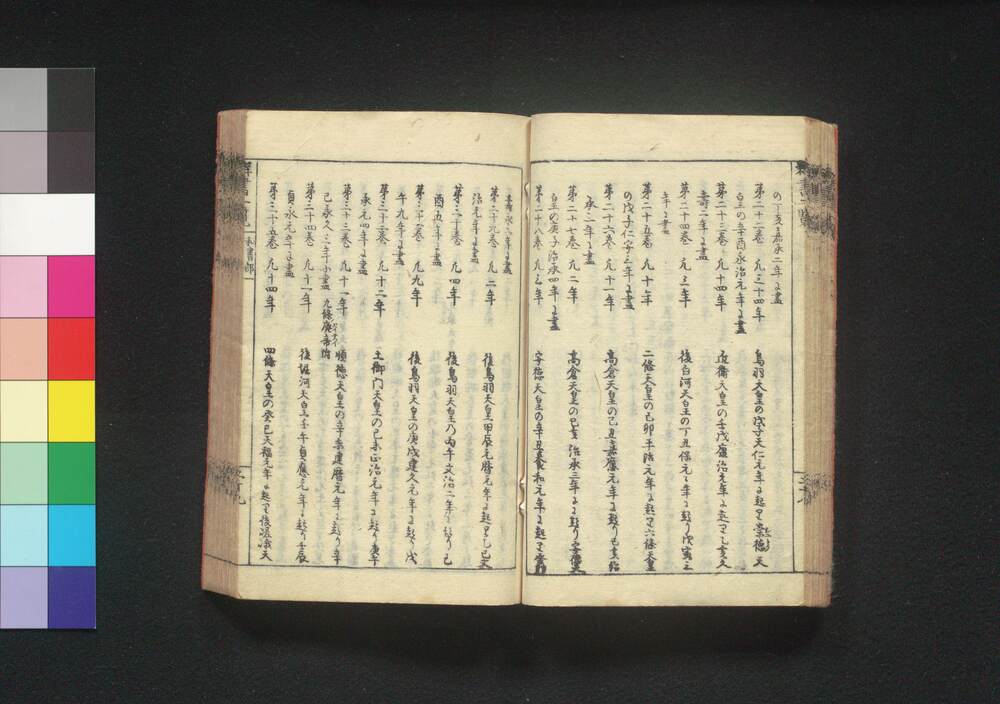 の丁亥嘉承二年に畫
第二十二巻 凡三十四年 鳥羽天皇の戊子天仁元年に起り崇徳天
皇の辛酉永治元年に畫
第二十三巻 凡十四年 近衛天皇の壬戌康治元年に起り乙亥久
壽二年に畫
第二十四巻 凡三年 後白河天皇の丁丑保元二年に起り戊寅三
年に畫
第二十五巻 凡十年 二條天皇の己卯平治元年に起り六條天皇
の戊子仁安三年に畫
第二十六巻 凡十一年 高倉天皇の己丑嘉應元年に起り己亥治
承三年に畫
第二十七巻 凡二年 高倉天皇の己亥治承三年に起り安德天
皇の庚子治承四年に畫
第二十八巻 凡三年 安德天皇の辛丑養和元年に起り
壽永二年に畫
第二十九巻 凡二年 後鳥羽天皇甲辰元暦元年に起り乙巳文
治元年に畫
第三十巻 凡四年 後鳥羽天皇の丙午文治二年に起り己
酉五年に畫
第三十一巻 凡九年 後鳥羽天皇の庚戌建久元年に起り戊
午九年に畫
第三十二巻 凡十二年 土御门天皇の己未正治元年に起り庚午
承元四年に畫
第三十三巻 凡十一年 順徳天皇の辛未建暦元年に起り辛
巳承久三年に畫 九條廢帝附
第三十四巻 凡十一年 後堀河天皇壬午貞應元年に起り壬辰
貞永元年に畫
第三十五巻 凡十四年 四條天皇の癸巳天福元年に起り後嵯峨天